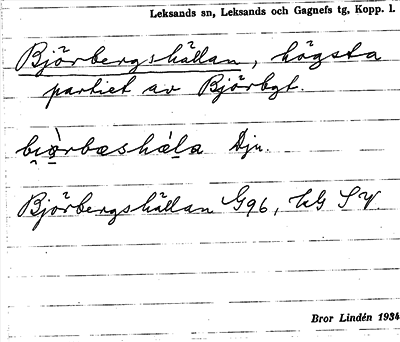 Leksands sn, Leksands och Gagnefs tg, Kopp. l.
Björbergshällan, högsta
partiet av Björbgt.
Dju.
Björbergshällan G96, KG SV.
Bror Lindén 1934